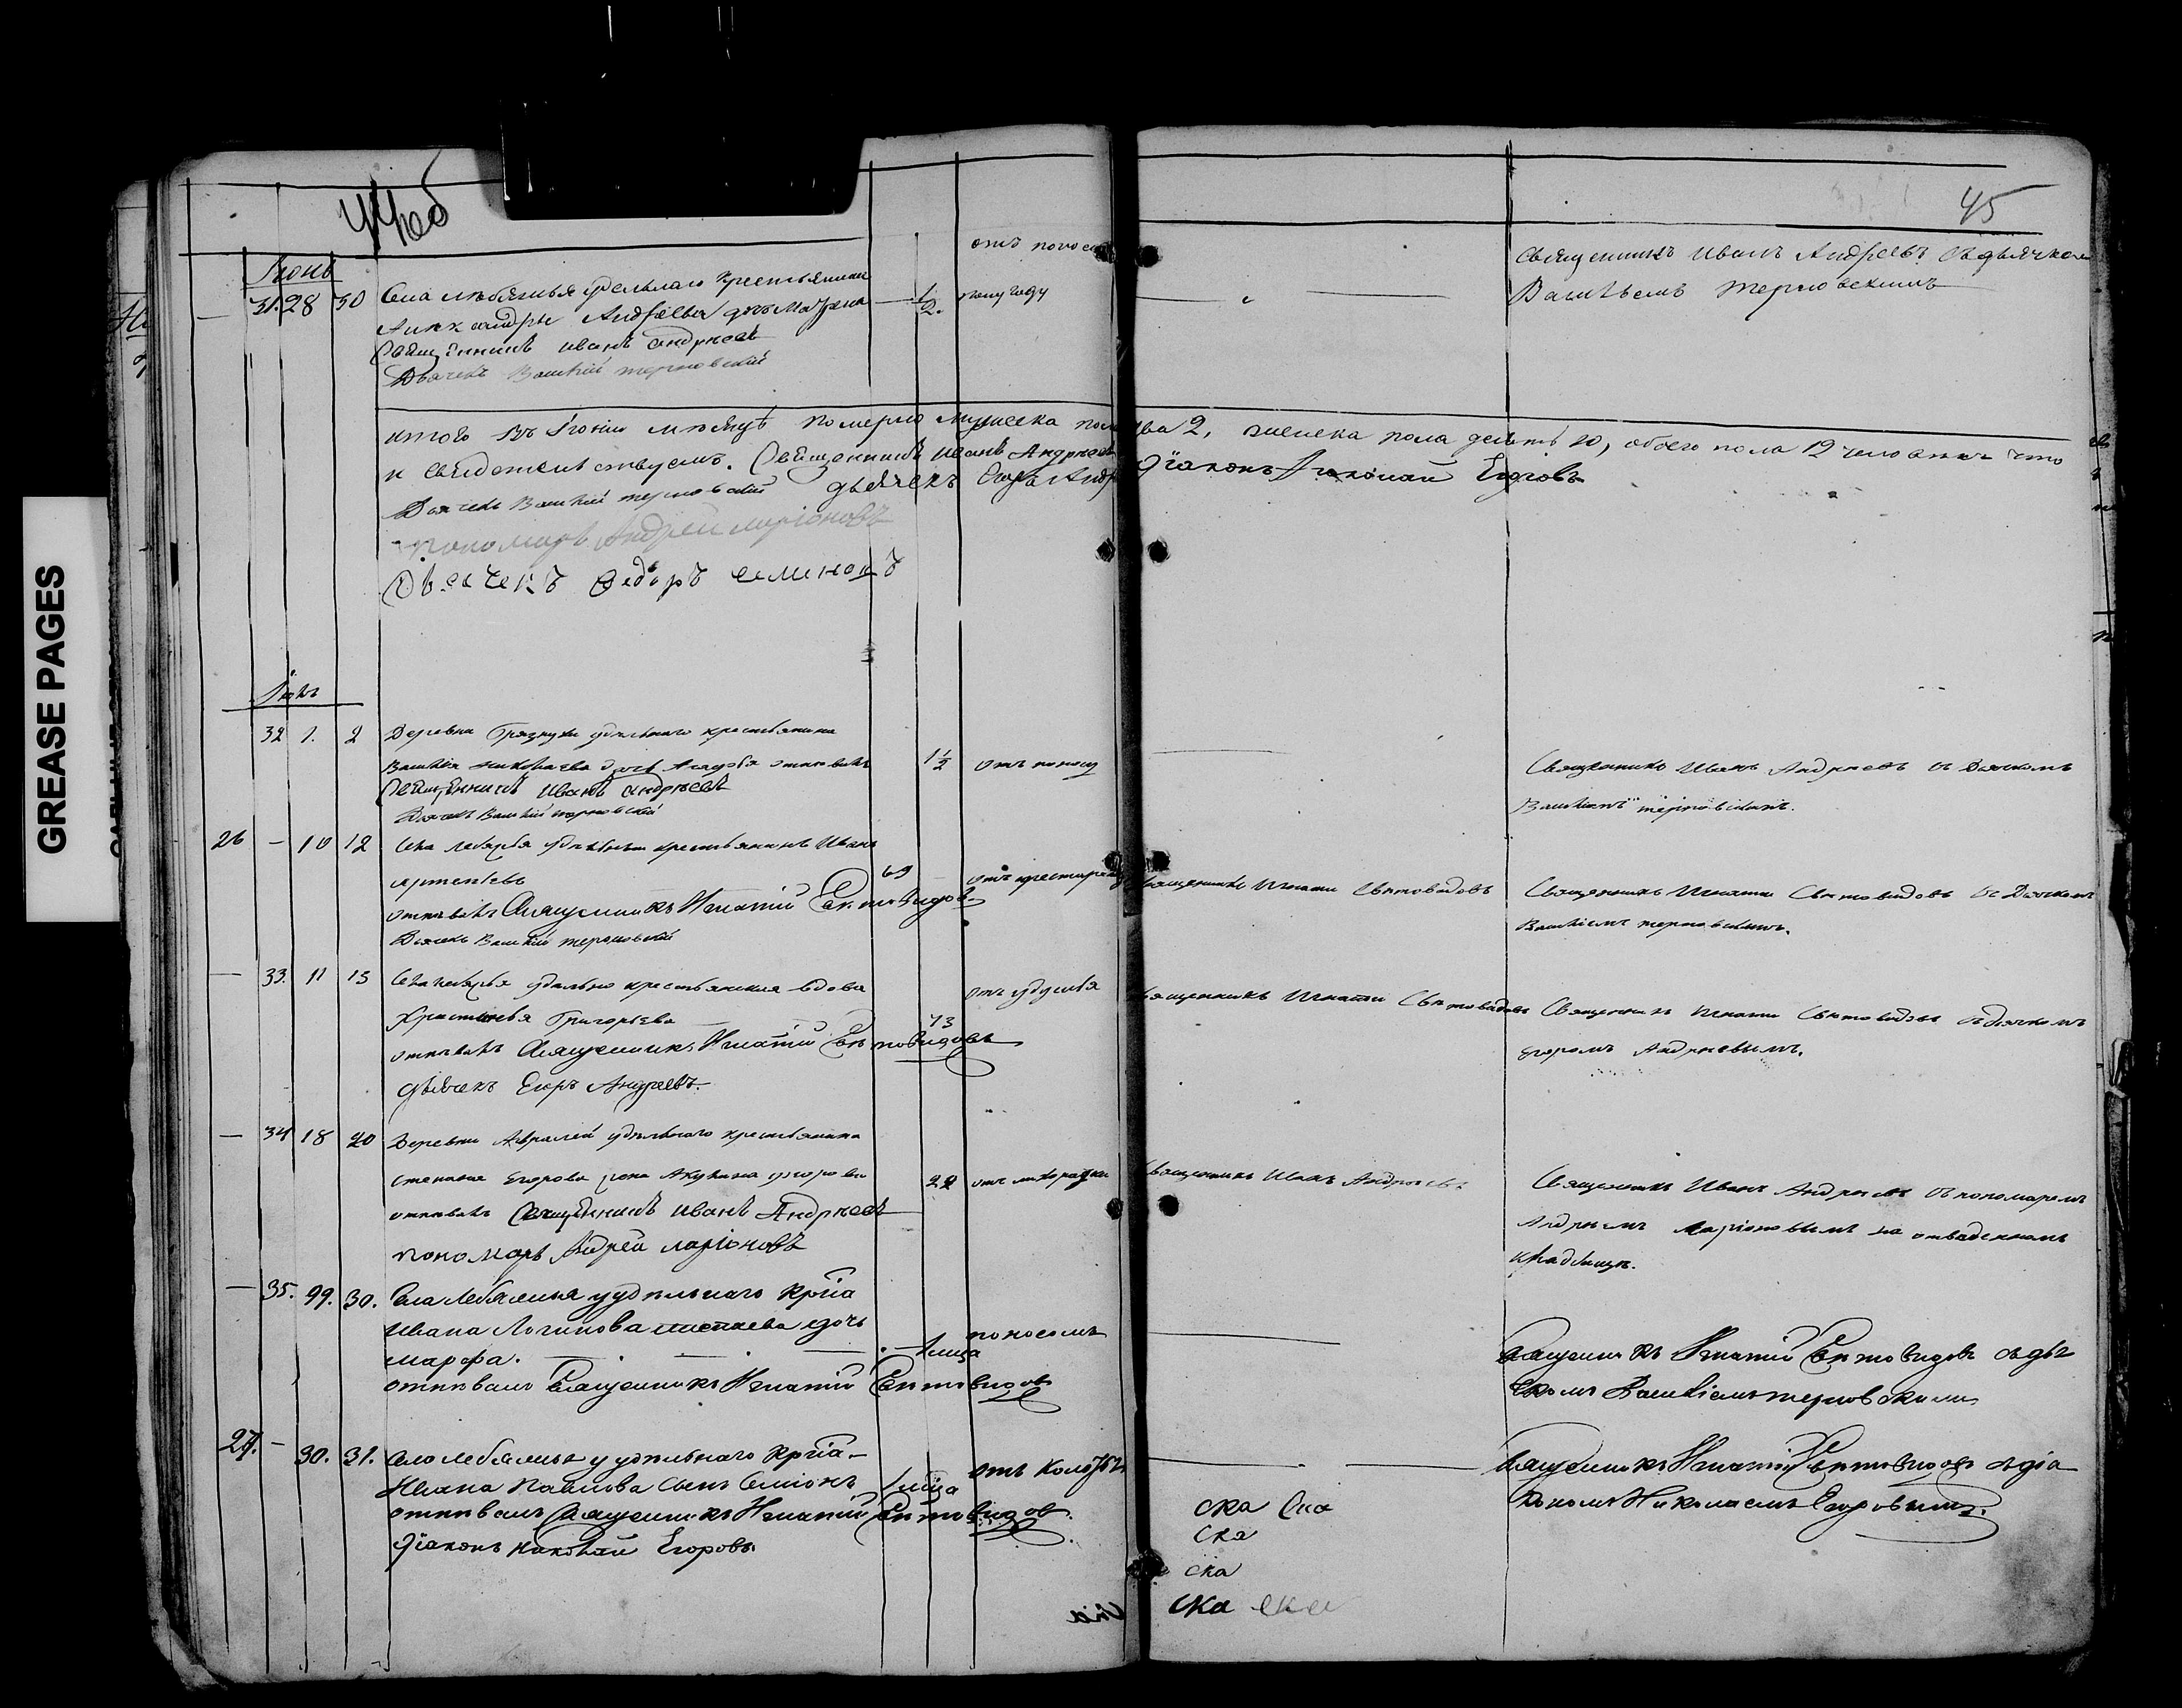 GREASE PAGES
44об
45
Июнь
31. 28 30 Села лебяжья удельнаго крестьянина
Андреева дочь Матрена
1/2.
полу году
Священникъ Иванъ Андреевъ
Дьячекъ Василій терновскій
Священникъ Иванъ Андреевъ съ дьячкомъ
Васильемъ Терновскимъ
итого въ Іюни месяце померло мужеска пола два 2, женска пола десять 10, обоего пола 12 человекъ что
и свидетельствуемъ. Священникъ Иванъ Андреевъ Діаконъ Николай Егоровъ
Дьячекъ Василій терновскій дьячекъ Егоръ Андр
пономарь Андрей ларіоновъ
Дьячекъ Федоръ семеновъ
Іюль
32 1. 2 Деревни Грязнухи удельнаго крестьянина
Василія Николаева дочь отпевалъ
1 1/2
отъ поносу
Священникъ Иванъ Андреевъ
Дьячекъ Василій терновскій
Священникъ Иванъ Андреевъ съ Дьячкомъ
Василіемъ терновскимъ.
26 — 10 12 Села лебяжья удельный крестьянинъ Иванъ
артемьевъ
69
отпевалъ Священникъ Игнатій Святовидовъ
Дьячекъ Василій терновскій
Священникъ Игнатій Святовидовъ
Священникъ Игнатій Святовидовъ съ Дьячкомъ
Василіемъ терновскимъ.
— 33. 11 13 Села лебяжья удельно крестьянская вдова
Григорьева
73
отъ удушья
отпевалъ Священникъ Игнатій Святовидовъ
дьячекъ Егоръ Андреевъ.
Священникъ Игнатій Святовидовъ
Священникъ Игнатій Святовидовъ съ дьячкомъ
Егоромъ Андреевымъ.
— 34 18 20 Деревни Авралей удельнаго крестьянина
степана Егорова жена Акулина
22
отъ лихорадки
отпевалъ Священникъ Иванъ Андреевъ
пономарь Андрей ларіоновъ
Священникъ Иванъ Андреевъ
Священникъ Иванъ Андреевъ съ пономаремъ
Андреемъ Ларіоновымъ на отведенномъ
кладбище.
— 35. 29. 30. Села Лебяжья удельнаго кр-на
Ивана Логинова дочь
марфа.
1 м-ца
поносомъ
отпевалъ Священникъ Игнатій Святовидовъ
Священникъ Игнатій Святовидовъ съ дья
чкомъ Василіемъ терновскимъ
27. — 30. 31. Села лебяжья удельнаго кр-на
Ивана Павлова сынъ Симіонъ
1 м-ца
отъ
отпевалъ Священникъ Игнатій Святовидовъ.
Діаконъ Николай Егоровъ.
Священникъ Игнатій Святовидовъ съ діа
кономъ Николаемъ Егоровымъ.
ска ска
ска
ска
ска ска